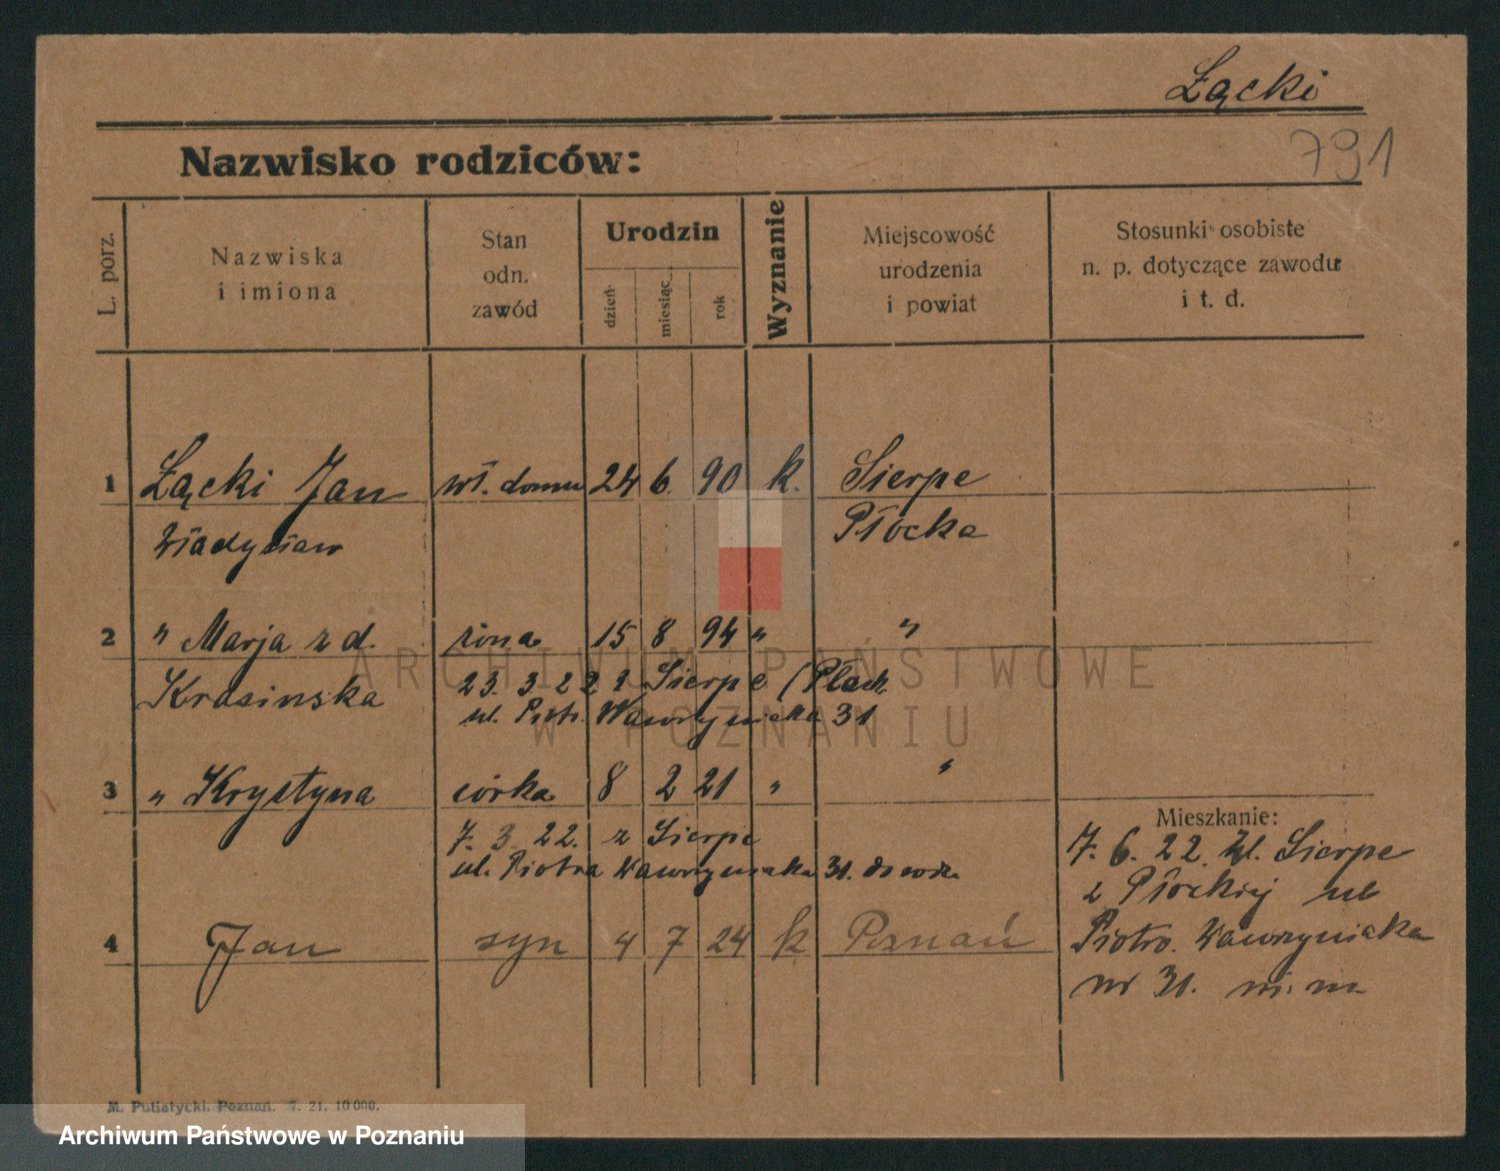 Łącki
791
Nazwisko rodziców:
L. porz.
Nazwiska
i imiona
Stan
odn.
zawód
Urodzin
dzień
miesiąc
rok
Wyznanie
Miejscowość
urodzenia
i powiat
Stosunki osobiste
n. p. dotyczące zawodu
i t. d.
1 Łącki Jan wł. domu 24 6. 90 k. Sierpc
Władysław Płocka
2 " Marja z d. żona 15 8 94 " "
Krasinska 23. 3. 22 z Sierpc (Płock
ul. Piotr. Wawrzyniaka 31
3 " Krystyna córka 8 2 21 " "
7. 3. 22. z Sierpc
ul. Piotra Wawrzyniaka 31.
Mieszkanie:
7. 6. 22. Sierpc
z Płockiej ul
Piotra. Wawrzyniaka
nr 31.
4 Jan syn 4 7 24 k Poznań
M. Putiatycki. Poznań. 7. 21. 10 000.
ARCHIWUM PAŃSTWOWE
W POZNANIU
Archiwum Państwowe w Poznaniu